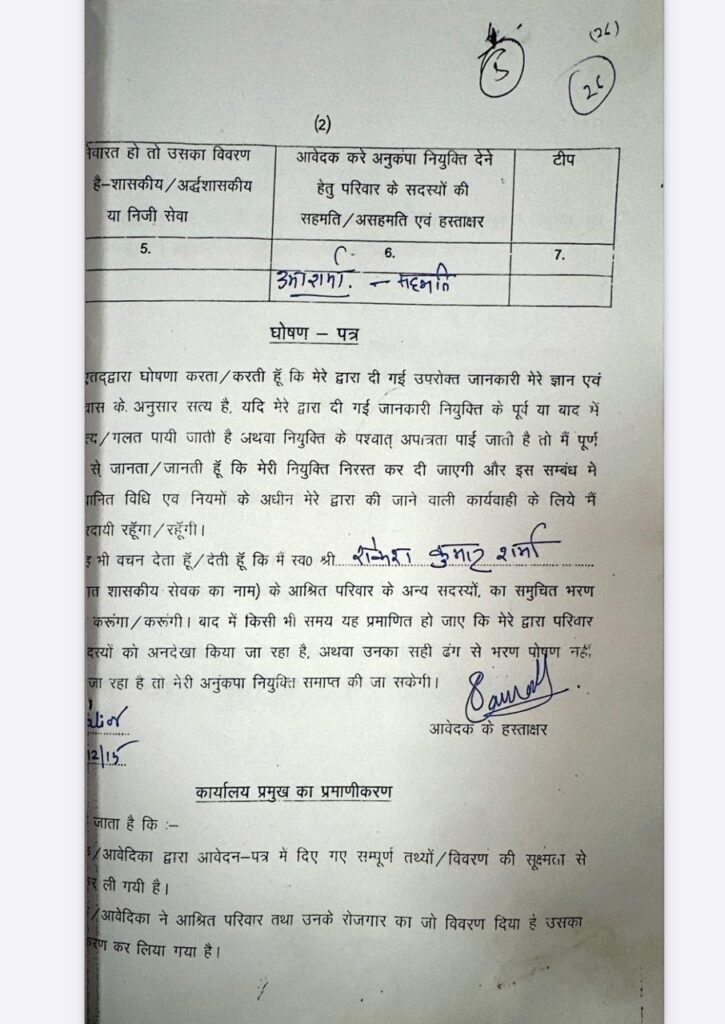 5
(26)
26
(2)
हो तो उसका विवरण
है-शासकीय/अर्द्धशासकीय
या निजी सेवा
आवेदक करे अनुकंपा नियुक्ति देने
हेतु परिवार के सदस्यों की
सहमति/असहमति एवं हस्ताक्षर
टीप
5.
6.
7.
- सहमति
घोषण – पत्र
घोषणा करता/करती हूँ कि मेरे द्वारा दी गई उपरोक्त जानकारी मेरे ज्ञान एवं
के अनुसार सत्य है, यदि मेरे द्वारा दी गई जानकारी नियुक्ति के पूर्व या बाद में
/गलत पायी जाती है अथवा नियुक्ति के पश्चात् अपात्रता पाई जाती है तो मैं पूर्ण
से जानता/जानती हूँ कि मेरी नियुक्ति निरस्त कर दी जाएगी और इस सम्बंध मे
विधि एव नियमों के अधीन मेरे द्वारा की जाने वाली कार्यवाही के लिये मैं
रहूँगा/रहूँगी।
भी वचन देता हूँ/देती हूँ कि मैं स्व0 श्री राकेश कुमार शर्मा
शासकीय सेवक का नाम) के आश्रित परिवार के अन्य सदस्यों, का समुचित भरण
करूंगा/करूंगी। बाद में किसी भी समय यह प्रमाणित हो जाए कि मेरे द्वारा परिवार
को अनदेखा किया जा रहा है, अथवा उनका सही ढंग से भरण पोषण नहीं
जा रहा है तो मेरी अनुंकपा नियुक्ति समाप्त की जा सकेगी।
आवेदक के हस्ताक्षर
12/15
कार्यालय प्रमुख का प्रमाणीकरण
जाता है कि :–
/आवेदिका द्वारा आवेदन-पत्र में दिए गए सम्पूर्ण तथ्यों/विवरण की सूक्ष्मता से
ली गयी है।
/आवेदिका ने आश्रित परिवार तथा उनके रोजगार का जो विवरण दिया है उसका
कर लिया गया है।